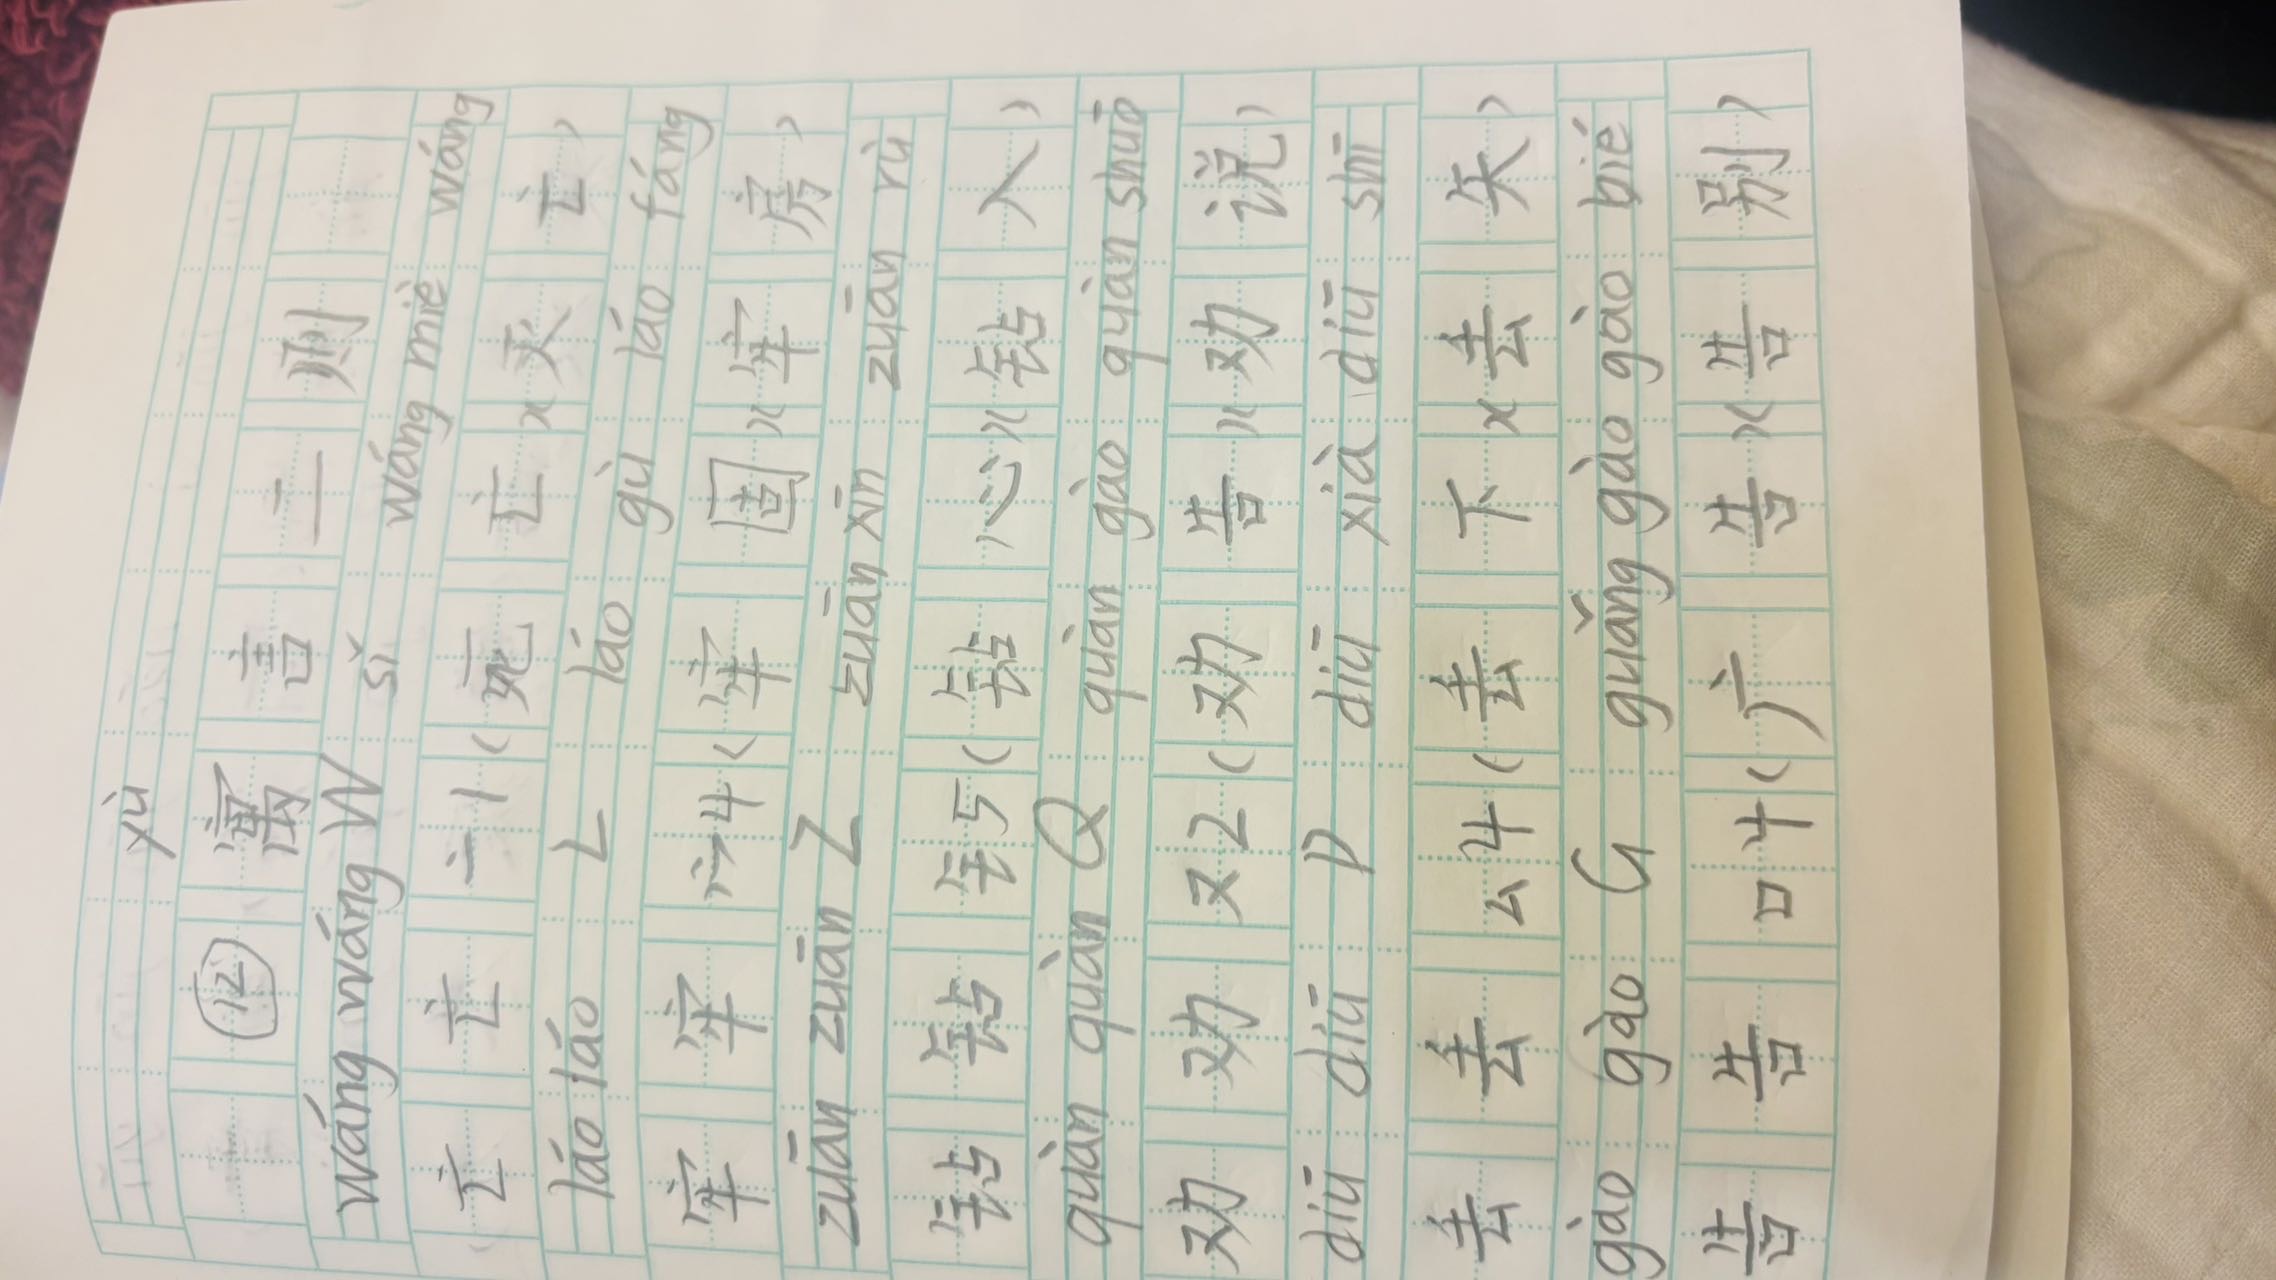 yù
⑫ 寓言二则
wáng wáng W sǐ wáng miè wáng
亡 亡 亠 1 (死亡 x 灭亡)
láo láo L láo gù láo fáng
牢 牢 宀 4 (牢固 x 牢房)
zuān zuān Z zuān xīn zuān rù
钻 钻 钅 5 (钻心 x 钻入)
quàn quàn Q quàn gào quàn shuō
劝 劝 又 2 (劝告 x 劝说)
diū diū D diū xià diū shī
丢 丢 厶 4 (丢下 x 丢失)
gào gào G guǎng gào gào bié
告 告 口 4 (广告 x 告别)